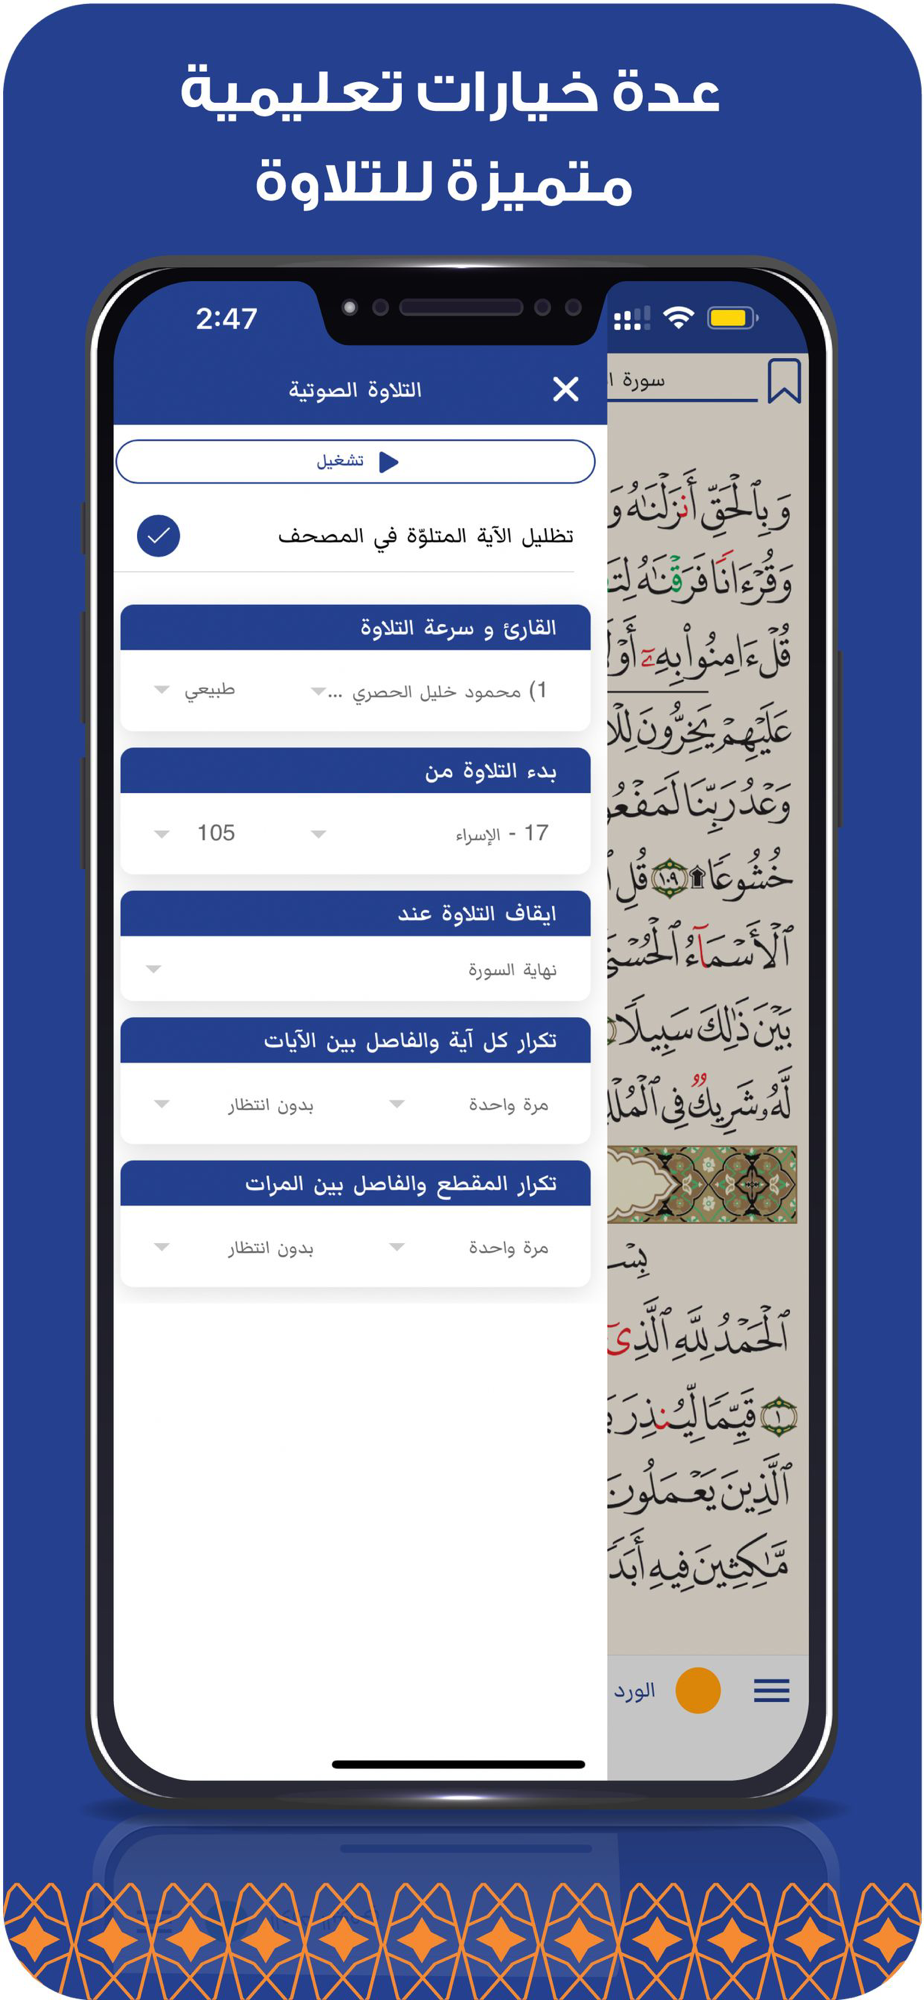 عدة خيارات تعليمية
متميزة للتلاوة
2:47
سورة ا
التلاوة الصوتية
تشغيل
تظليل الآية المتلوّة في المصحف
القارئ و سرعة التلاوة
1) محمود خليل الحصري ... طبيعي
بدء التلاوة من
17 - الإسراء 105
ايقاف التلاوة عند
نهاية السورة
تكرار كل آية والفاصل بين الآيات
مرة واحدة بدون انتظار
تكرار المقطع والفاصل بين المرات
مرة واحدة بدون انتظار
وَبِٱلْحَقِّ أَنزَلْنَٰهُ وَ
وَقُرْءَانًا فَرَقْنَٰهُ لِتَ
قُلْ ءَامِنُوا۟ بِهِۦٓ أَوْ لَا
عَلَيْهِمْ يَخِرُّونَ لِلْأ
وَعْدُ رَبِّنَا لَمَفْعُو
خُشُوعًا ۩ ١٠٩ قُلِ ٱ
ٱلْأَسْمَآءُ ٱلْحُسْنَى
بَيْنَ ذَٰلِكَ سَبِيلًا
لَّهُۥ شَرِيكٌ فِى ٱلْمُلْ
بِسْ
ٱلْحَمْدُ لِلَّهِ ٱلَّذِىٓ
١ قَيِّمًا لِّيُنذِرَ بَ
ٱلَّذِينَ يَعْمَلُونَ
مَّٰكِثِينَ فِيهِ أَبَدً
الورد